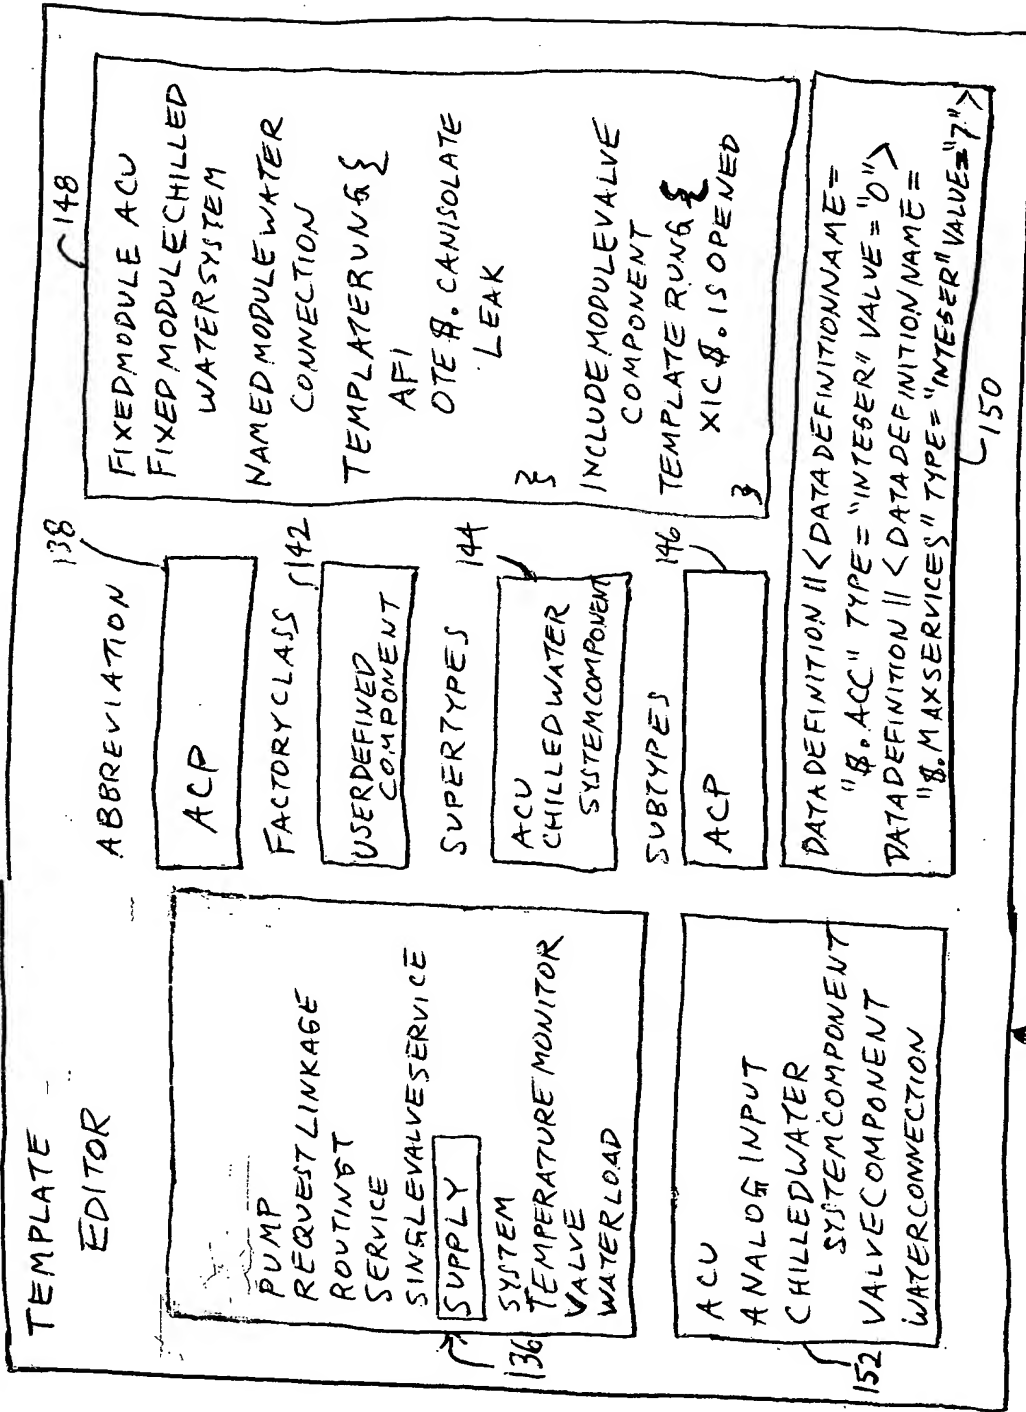 TEMPLATE
EDITOR
PUMP
REQUEST LINKAGE
ROUTINGT
SERVICE
SINGLEVALVESERVICE
SUPPLY
SYSTEM
TEMPERATURE MONITOR
VALVE
WATERLOAD
136
ACU
ANALOG INPUT
CHILLEDWATER
SYSTEMCOMPONENT
VALVECOMPONENT
WATERCONNECTION
152
ABBREVIATION
138
ACP
FACTORYCLASS
142
USERDEFINED
COMPONENT
SUPERTYPES
144
ACU
CHILLEDWATER
SYSTEMCOMPONENT
SUBTYPES
146
ACP
148
FIXEDMODULE ACU
FIXEDMODULECHILLED
WATERSYSTEM
NAMEDMODULEWATER
CONNECTION
TEMPLATERUNG {
AFI
OTE $.CANISOLATE
LEAK
}
INCLUDEMODULEVALVE
COMPONENT
TEMPLATE RUNG {
XIC $.ISOPENED
}
DATADEFINITION || <DATADEFINITIONNAME=
"$.ACC" TYPE="INTEGER" VALUE="0">
DATADEFINITION || <DATADEFINITIONNAME=
"$.MAXSERVICES" TYPE="INTEGER" VALUE="7">
150